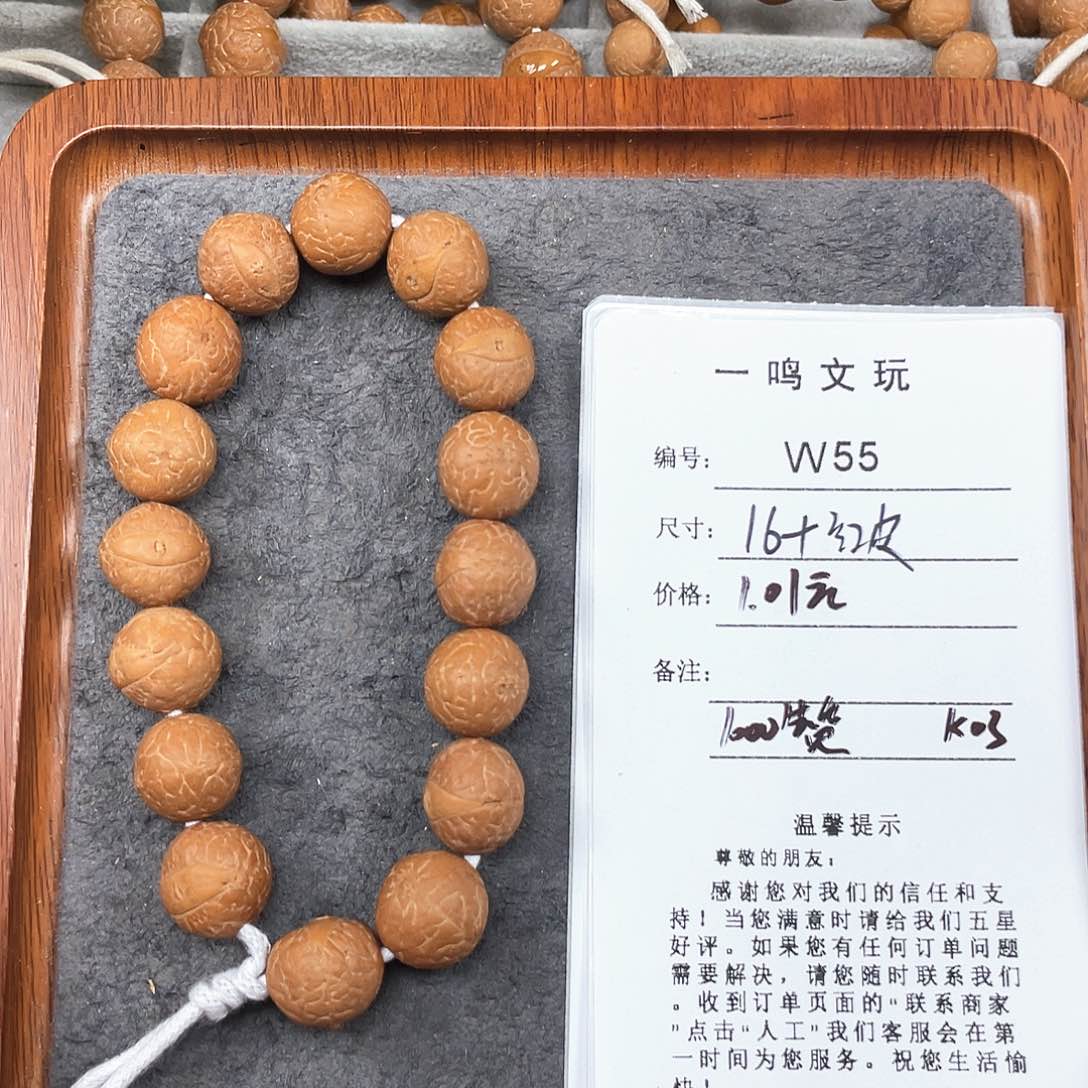 一鸣文玩
编号： W55
尺寸： 16+红皮
价格： 1.01元
备注：
1000 K03
温馨提示
尊敬的朋友：
感谢您对我们的信任和支
持！当您满意时请给我们五星
好评。如果您有任何订单问题
需要解决，请您随时联系我们
。收到订单页面的“联系商家
”点击“人工”我们客服会在第
一时间为您服务。祝您生活愉
快！